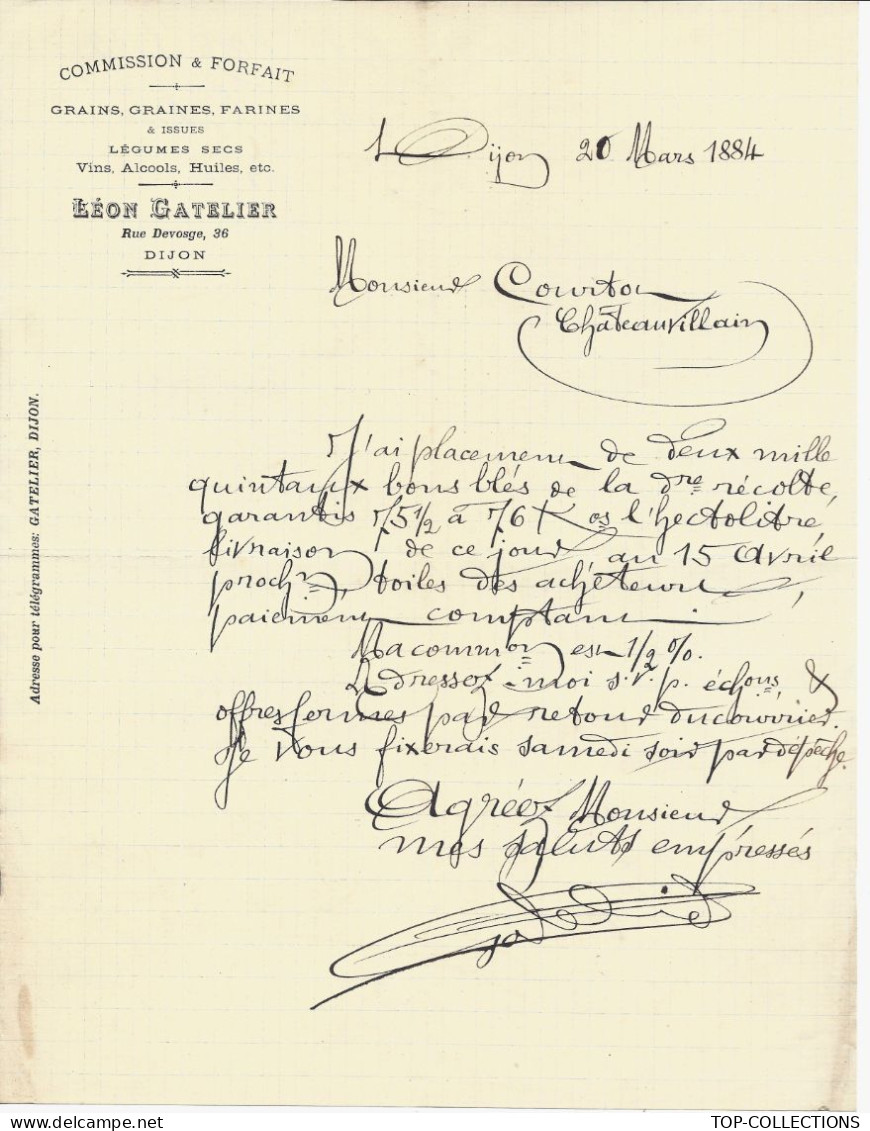 COMMISSION & FORFAIT
GRAINS, GRAINES, FARINES
& ISSUES
LÉGUMES SECS
Vins, Alcools, Huiles, etc.
LÉON GATELIER
Rue Devosge, 36
DIJON
Adresse pour télégrammes: GATELIER, DIJON.
Dijon 20 Mars 1884
Monsieur Courtot
Châteauvillain
J'ai placement de deux mille
quintaux bons blés de la dre récolte,
garantis 75 1/2 à 76 Kos l'hectolitre
livraison de ce jour au 15 Avril
prochn, toiles des acheteurs,
paiement comptant.
Ma common est 1/2 %.
Adressez-moi s.v.p. échons, &
offres fermes par retour du courrier.
Je vous fixerais samedi soir par dépêche.
Agréez Monsieur
mes saluts empressés
Gatelier
TOP-COLLECTIONS